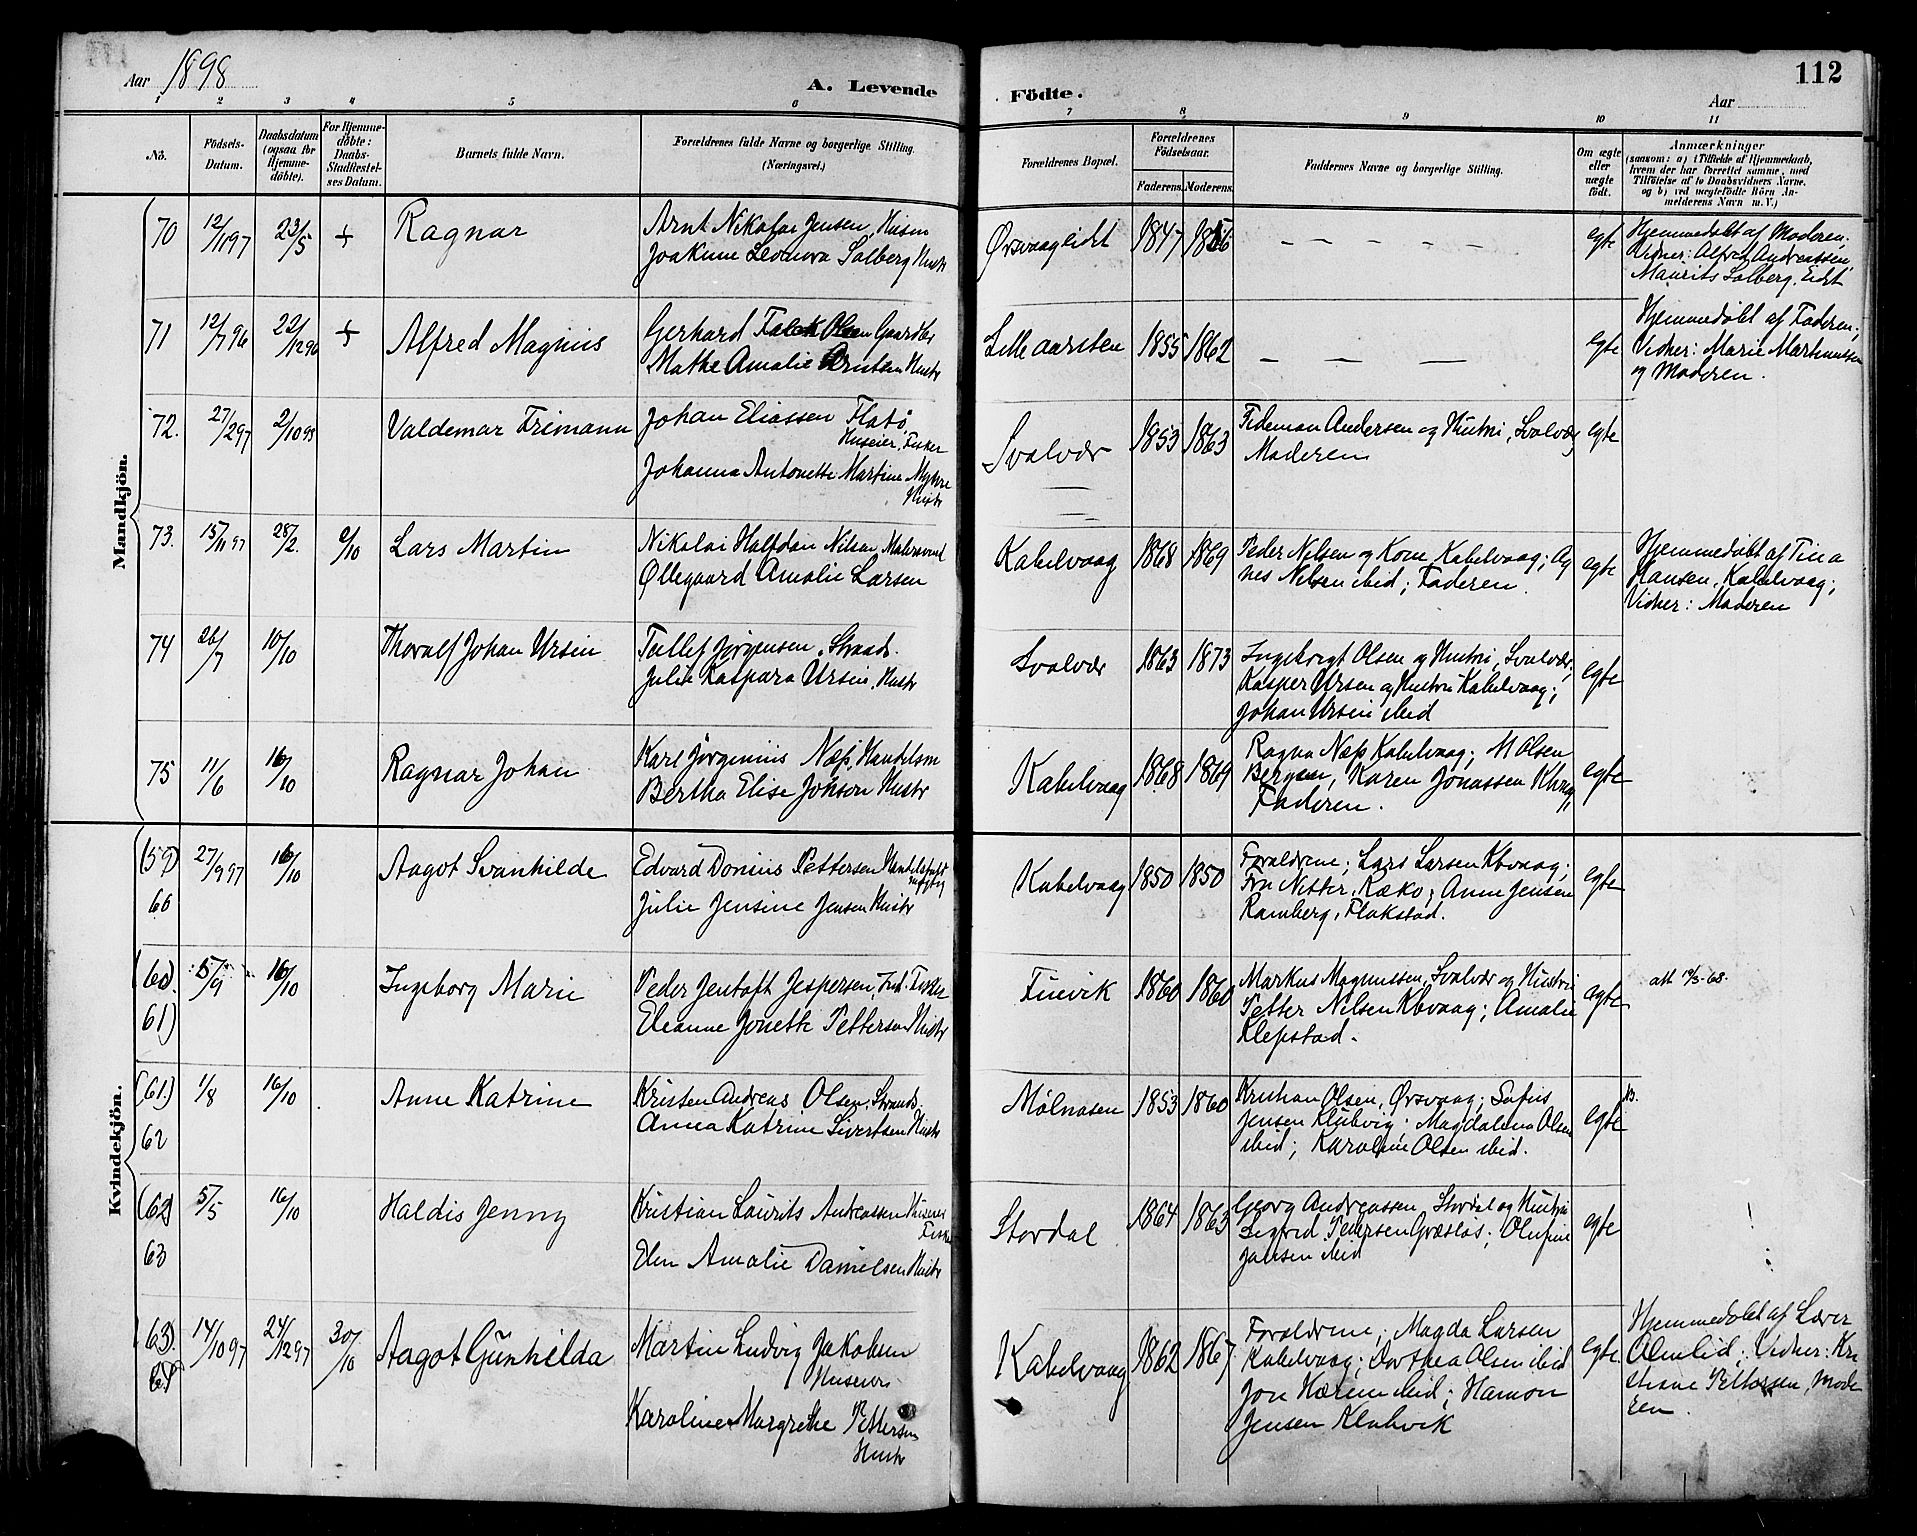 Aar 1898
A. Levende
Födte.
112
Aar
1 2 3 4 5 6
7 8 9 10 11
No.
Födsels-
Datum.
Daabsdatum
(ogsaa for
Hjemme-
döbte).
For Hjemme-
döbte:
Daabs-
Stadfæstel-
ses Datum.
Barnets fulde Navn.
Forældrenes fulde Navne og borgerlige Stilling.
(Næringsvei.)
Forældrenes Bopæl.
Forældrenes
Födselsaar.
Faderens. Moderens.
Faddernes Navne og borgerlige Stilling.
Om ægte
eller
uægte
födt.
Anmærkninger
(saasom: a) i Tilfælde af Hjemmedaab,
hvem der har forrettet samme, med
Tilföielse af to Daabsvidners Navne,
og b) ved uægtefödte Börn An-
melderens Navn m. V.)
Mandkjön.
70 12/11 97 23/5 + Ragnar
Arnt Nikolai Jensen, Husm
Joakime Leonora Solberg Hustr
Ørsvaageidt 1847 1856 – – – – – egte
Hjemmedøbt af Moderen;
Vidner: Alfred Andreassen,
Maurits Solberg, Eidt
71 12/7 96 22/12 96 + Alfred Magnus
Gerhard Falck Olsen Gaardbr
Mathe Amalie Arntsen Hustr
Lille aarsten 1855 1862 – – – egte
Hjemmedøbt af Faderen;
Vidner: Marie Martinussen
og Moderen.
72. 27/2 97 2/10 98 Valdemar Frimann
Johan Eliassen Flatø
Huseier, Fisker
Johanna Antonette Martine Myhre
Hustr
Svolvær 1853 1863
Fedeman Andersen og Hustru, Svolvær,
Moderen
egte
73. 15/11 97 28/2. 9/10 Lars Martin
Nikolai Halfdan Nilsen, Malersvend
Øllegaard Amalie Larsen
Kabelvaag 1868 1869
Peder Nilsen og Kone, Kabelvaag; Ag
nes Nelsen ibid; Faderen.
egte
Hjemmedøbt af Tina
Hansen, Kabelvaag;
Vidner: Moderen
74 26/7 10/10 Thoralf Johan Ursin
Tollef Jørgensen, Strands.
Julie Kaspara Ursin, Hustr
Svolvær 1863 1873
Ingebrigt Olsen og Hustru, Svolvær;
Kasper Ursen og Hustru Kabelvaag;
Johan Ursin ibid
egte
75 11/6 16/10 Ragnar Johan
Karl Jørginius Næss, Handelsm
Bertha Elise Johson Hustr
Kabelvaag 1868 1869
Ragna Næss Kabelvaag; M Olsen
Bergen, Karen Jonassen Kbvaag,
Faderen.
egte
Kvindekjön.
(59) 27/9 97 16/10 Aagot Svanhilde
60
Edvard Donius Pettersen
Julie Jensine Jensen Hustr
Kabelvaag 1850 1850
Forældrene; Lars Larsen Kbvaag;
Fru Netter, Ræko; Anne Jensen
Ramberg, Flakstad.
egte
(60) 5/9 16/10 Ingeborg Marie
61)
Peder Jentoft Jespersen, Ind. Fisker
Eleanne Jonette Pettersen Hustr
Finvik 1860 1860
Markus Magnussen, Svolvær og Hustru
Petter Nilsen Kbvaag; Amalie
Klepstad.
egte
att 19/3-68.
(61.) 1/8 16/10 Anne Katrine
62
Kristen Andreas Olsen, Strands.
Anna Katrine Sivertsen Hustr
Mølnosen 1853 1860
Kristian Olsen, Ørsvaag; Sofus
Jensen Klubvig; Magdalena Olsen
ibid; Karoline Olsen ibid.
egte
(62) 5/5 16/10 Haldis Jenny
63
Kristian Laurits Andreassen Huseier
Fisker
Elen Amalie Danielsen Hustr
Stordal 1864 1863
Georg Andreassen, Stordal og Hustru
Sigrid Pedersen Græsløs; Olufine
Jansen ibid
egte
(63) 14/10 97 24/12 97 30/10 Aagot Gunhilda
64
Martin Ludvig Jakobsen
Huseier
Karoline Margrethe Pettersen
Hustr
Kabelvaag 1862 1867
Forældrene; Magda Larsen
Kabelvaag; Dorthea Olsen ibid
Jon Hærem ibid; Hamon
Jensen Klubvik
egte.
Hjemmedøbt af Lærer
Olmlid; Vidner: Kri
stiane Pettersen, Mode
ren.